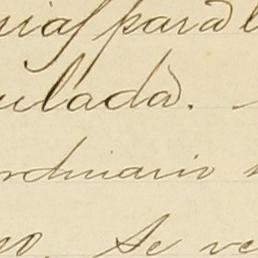 nias para l
ulada.
rdinario
so. Se ve